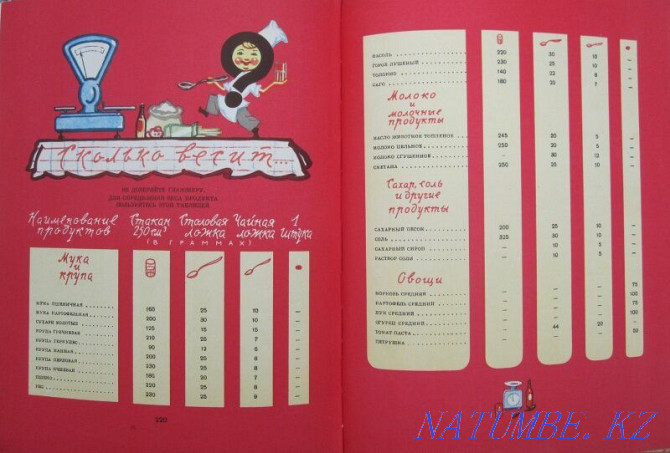 Сколько весит...
НЕ ДОВЕРЯЙТЕ ГЛАЗОМЕРУ,
ДЛЯ ОПРЕДЕЛЕНИЯ ВЕСА ПРОДУКТА
ПОЛЬЗУЙТЕСЬ ЭТОЙ ТАБЛИЦЕЙ
Наименование продуктов Стакан 250 см³ Столовая ложка Чайная ложка 1 штука
(В ГРАММАХ)
Мука
и
крупа
МУКА ПШЕНИЧНАЯ 160 25 10 —
МУКА КАРТОФЕЛЬНАЯ 200 30 10 —
СУХАРИ МОЛОТЫЕ 125 15 —
КРУПА ГРЕЧНЕВАЯ 210 25 7 —
КРУПА 90 12 6 —
КРУПА МАННАЯ 200 25 8 —
КРУПА 230 25 8 —
КРУПА ЯЧНЕВАЯ 180 20 7 —
ПШЕНО 220 25 8 —
РИС 230 25 9 —
220
ФАСОЛЬ 220 30 10 —
ГОРОХ ЛУЩЕНЫЙ 230 25 —
ТОЛОКНО 140 —
САГО 180 7 —
Молоко
и
молочные
продукты
МАСЛО ЖИВОТНОЕ ТОПЛЕНОЕ 245 20 5 —
МОЛОКО ЦЕЛЬНОЕ 250 20 5 —
МОЛОКО СГУЩЕННОЕ — 30 12 —
СМЕТАНА 250 25 10 —
Сахар, соль
и другие
продукты
САХАРНЫЙ ПЕСОК 200 25 10 —
СОЛЬ 325 30 10 —
САХАРНЫЙ СИРОП — 10 5 —
РАСТВОР СОЛИ — 10 5 —
Овощи
МОРКОВЬ СРЕДНЯЯ — — — 75
КАРТОФЕЛЬ СРЕДНИЙ — — — 100
ЛУК СРЕДНИЙ — — — 75
ОГУРЕЦ СРЕДНИЙ — — — 100
ТОМАТ-ПАСТА — 44 —
ПЕТРУШКА — — — 50
NATUMBE. KZ